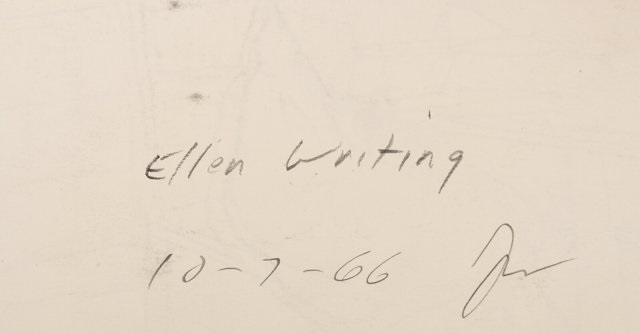 Ellen Writing
10-7-66